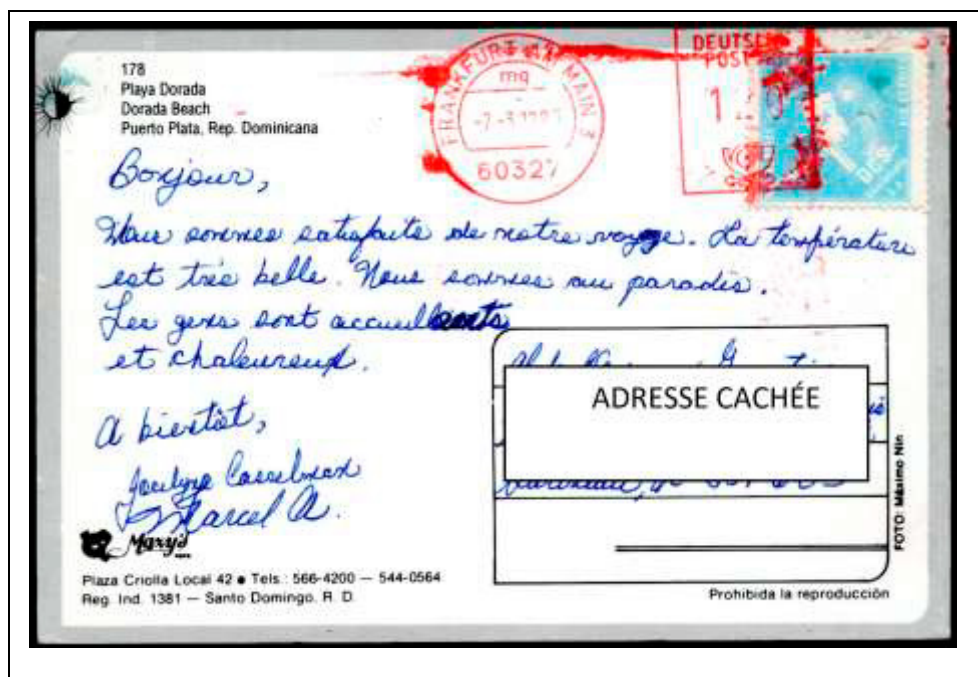 178
Playa Dorada
Dorada Beach
Puerto Plata, Rep. Dominicana
FRANKFURT AM MAIN 3
mq
60327
DEUTSCHE
POST
Bonjour,
Nous sommes satisfaits de notre voyage. La température
est très belle. Nous sommes au paradis.
Les gens sont accueillants
et chaleureux.
A bientôt,
Marcel A.
ADRESSE CACHÉE
FOTO: Máximo Nin
Maxy's
Plaza Criolla Local 42 • Tels.: 566-4200 — 544-0564
Reg. Ind. 1381 — Santo Domingo, R. D.
Prohibida la reproducción